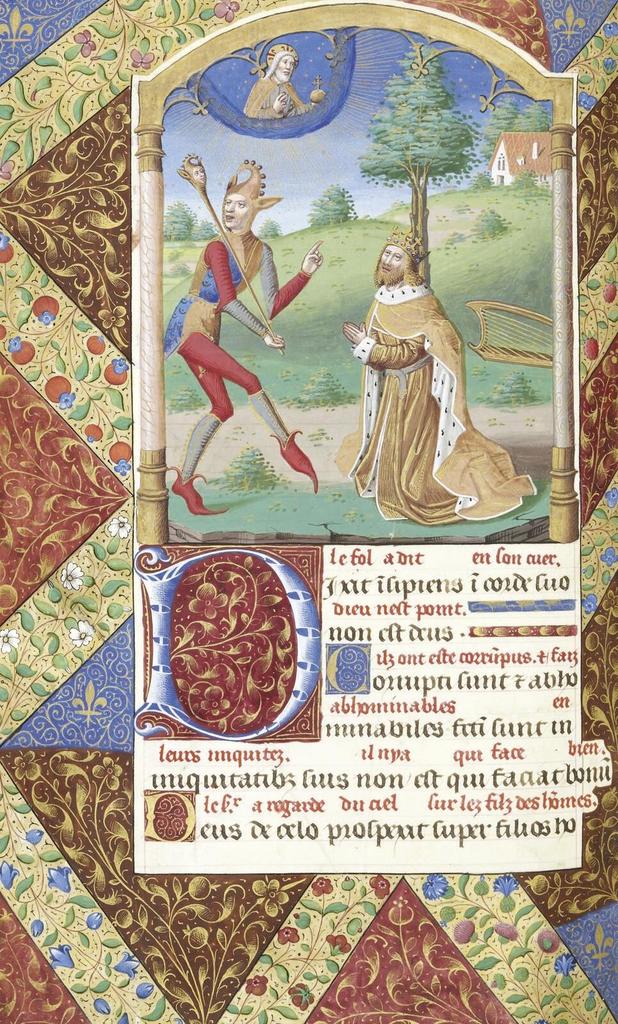 le fol a dit en son cuer.
Dixit īsipiens ī corde suo
dieu nest point.
non est deus.
ilz ont este corrūpus. & faiz
Corrupti sunt & abho
abhominables en
minabiles fcti sunt in
leurs iniquitez. il nya qui face bien.
iniquitatibz suis non est qui faciat bonū
le sr. a regarde du ciel sur lez filz des hōmes.
Deus de celo prospexit super filios ho